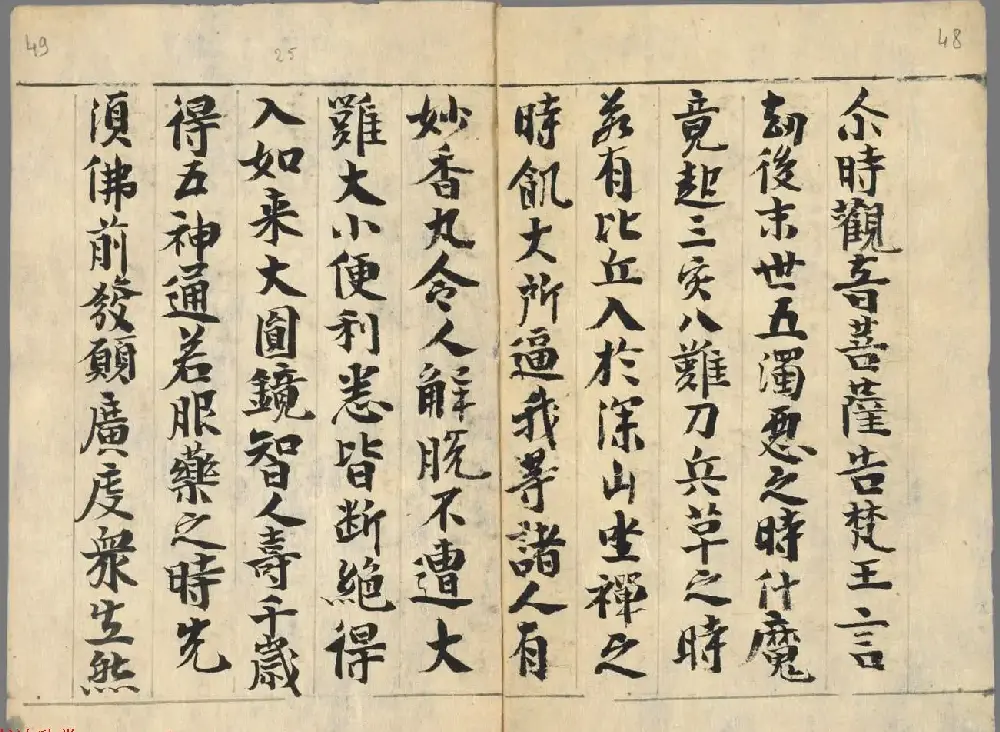 48
尒時觀音菩薩告梵王言
劫後末世五濁惡之時什魔
竟起三灾八難刀兵草之時
若有比丘入於深山坐禪之
時飢火所逼我等諸人有
49
25
妙香丸令人解脫不遭大
難大小便利悉皆断絕得
入如来大圓鏡智人壽千歲
得五神通若服藥之時先
須佛前發願廣度衆生然